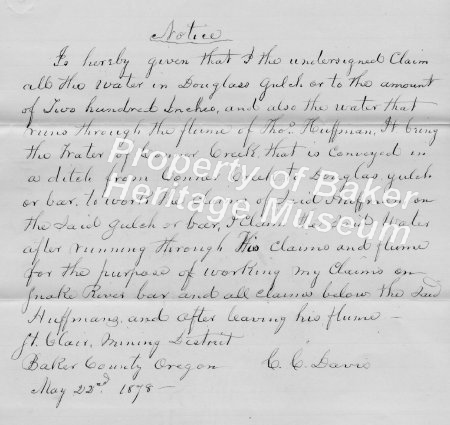 Notice
Is hereby given that I the undersigned Claim
all the Water in Douglass Gulch or to the amount
of Two hundred Inches, and also the water that
runs through the flume of Thos. Huffman, It being
the Water of Conner Creek, that is conveyed in
a ditch from Conner Creek to Douglas gulch
or bar, to work the claims of said Huffman, on
the said gulch or bar, I Claim the said Water
after running through His claims and flume
for the purpose of working my Claims on
Snake River bar and all claims below the said
Huffmans, and after leaving his flume –
St. Clair, Mining District
Baker County Oregon C. C. Davis
May 22nd 1878 –
Property of Baker
Heritage Museum